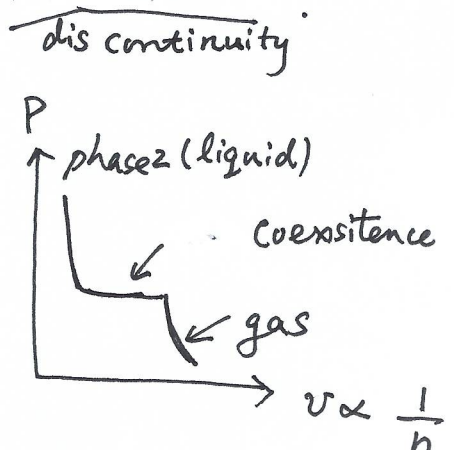 discontinuity
P
phase2 (liquid)
coexsitence
gas
v ∝ 1/n